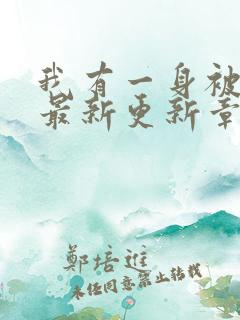 我有一身被
最新更新章
鄭培進
未任同意禁止转载